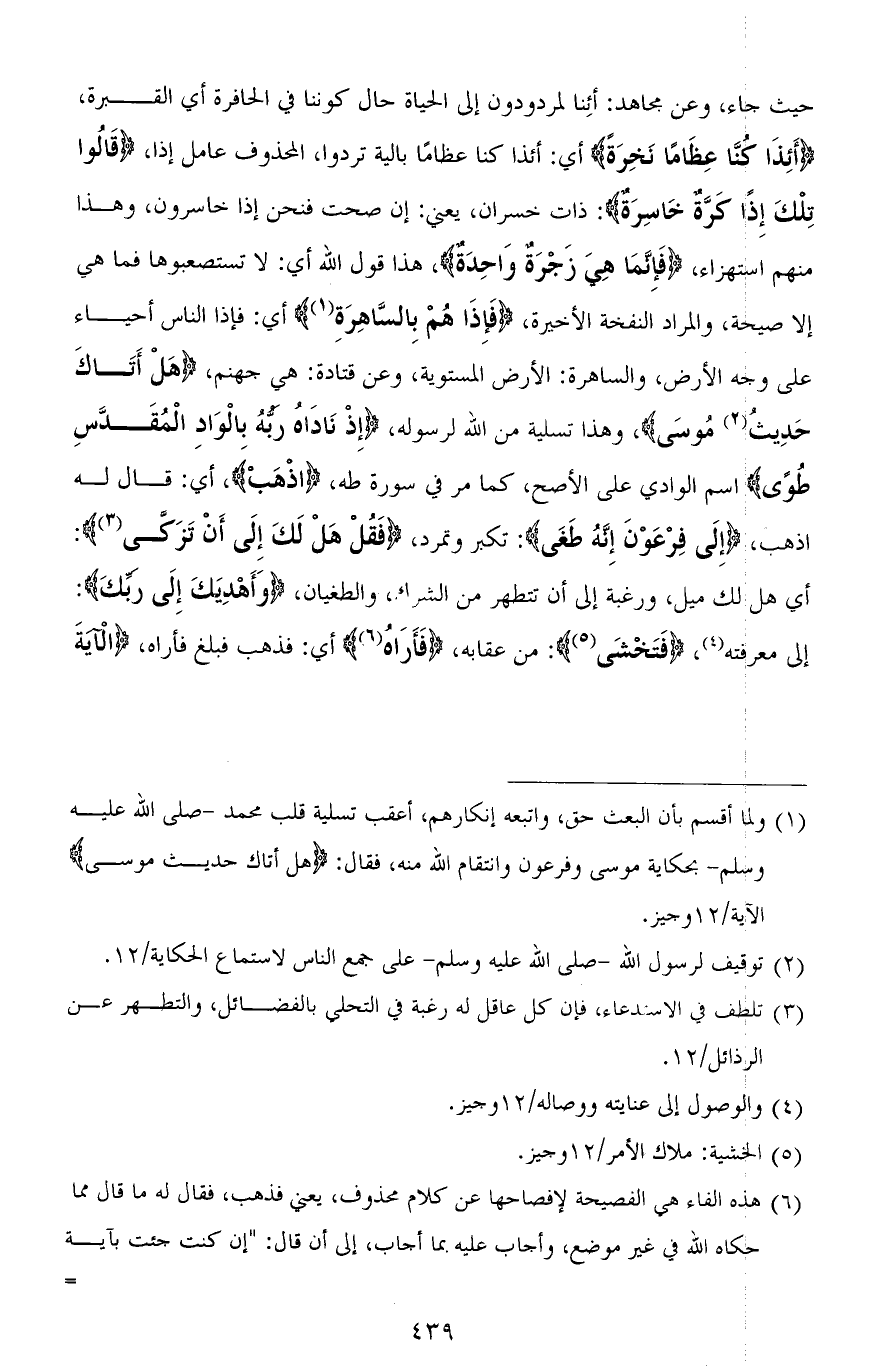 حيث جاء، وعن مجاهد: أئنا لمردودون إلى الحياة حال كوننا في الحافرة أي القبرة،
﴿أَئِذَا كُنَّا عِظَامًا نَخِرَةً﴾ أي: أئذا كنا عظامًا بالية تردوا، المحذوف عامل إذا، ﴿قَالُوا
تِلْكَ إِذًا كَرَّةٌ خَاسِرَةٌ﴾: ذات خسران، يعني: إن صحت فنحن إذا خاسرون، وهذا
منهم استهزاء، ﴿فَإِنَّمَا هِيَ زَجْرَةٌ وَاحِدَةٌ﴾، هذا قول الله أي: لا تستصعبوها فما هي
إلا صيحة، والمراد النفخة الأخيرة، ﴿فَإِذَا هُمْ بِالسَّاهِرَةِ(١)﴾ أي: فإذا الناس أحياء
على وجه الأرض، والساهرة: الأرض المستوية، وعن قتادة: هي جهنم، ﴿هَلْ أَتَاكَ
حَدِيثُ(٢) مُوسَى﴾، وهذا تسلية من الله لرسوله، ﴿إِذْ نَادَاهُ رَبُّهُ بِالْوَادِ الْمُقَدَّسِ
طُوًى﴾ اسم الوادي على الأصح، كما مر في سورة طه، ﴿اذْهَبْ﴾، أي: قال له
اذهب، ﴿إِلَى فِرْعَوْنَ إِنَّهُ طَغَى﴾: تكبر وتمرد، ﴿فَقُلْ هَلْ لَكَ إِلَى أَنْ تَزَكَّى(٣)﴾:
أي هل لك ميل، ورغبة إلى أن تتطهر من الشرك، والطغيان، ﴿وَأَهْدِيَكَ إِلَى رَبِّكَ﴾:
إلى معرفته(٤)، ﴿فَتَخْشَى(٥)﴾: من عقابه، ﴿فَأَرَاهُ(٦)﴾ أي: فذهب فبلغ فأراه، ﴿الْآيَةَ
(١) ولما أقسم بأن البعث حق، واتبعه إنكارهم، أعقب تسلية قلب محمد -صلى الله عليه
وسلم- بحكاية موسى وفرعون وانتقام الله منه، فقال: ﴿هل أتاك حديث موسى﴾
الآية/١٢وجيز.
(٢) توقيف لرسول الله -صلى الله عليه وسلم- على جمع الناس لاستماع الحكاية/١٢.
(٣) تلطف في الاستدعاء، فإن كل عاقل له رغبة في التحلي بالفضائل، والتطهر عن
الرذائل/١٢.
(٤) والوصول إلى عنايته ووصاله/١٢وجيز.
(٥) الخشية: ملاك الأمر/١٢وجيز.
(٦) هذه الفاء هي الفصيحة لإفصاحها عن كلام محذوف، يعني فذهب، فقال له ما قال مما
حكاه الله في غير موضع، وأجاب عليه بما أجاب، إلى أن قال: "إن كنت جئت بآية
=
٤٣٩